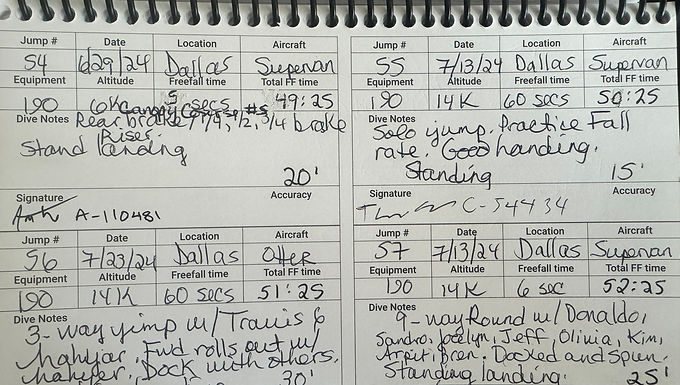 Jump # Date Location Aircraft
54 6/29/24 Dallas Supervan
Equipment Altitude Freefall time Total FF time
190 6K 5 secs 49:25
Dive Notes Canopy Course #5
Rear brake / 1/4, 1/2, 3/4 brake
Riser.
Stand landing
20'
Signature Accuracy
A-110481
Jump # Date Location Aircraft
55 7/13/24 Dallas Supervan
Equipment Altitude Freefall time Total FF time
190 14K 60 secs 50:25
Dive Notes
Solo jump. Practice Fall
rate. Good handing.
Standing 15'
Signature Accuracy
C-54434
Jump # Date Location Aircraft
56 7/23/24 Dallas Otter
Equipment Altitude Freefall time Total FF time
190 14K 60 secs 51:25
Dive Notes
3-way jump w/ Travis &
Mahyar. Fwd rolls out w/
Mahyer. Dock with others.
30'
Jump # Date Location Aircraft
57 7/13/24 Dallas Supervan
Equipment Altitude Freefall time Total FF time
190 14K 6 sec 52:25
Dive Notes
9-way Round w/ Donaldo,
Sandro, Jocelyn, Jeff, Olivia, Kim,
Arpit, Bren. Docked and spun.
Standing landing. 25'